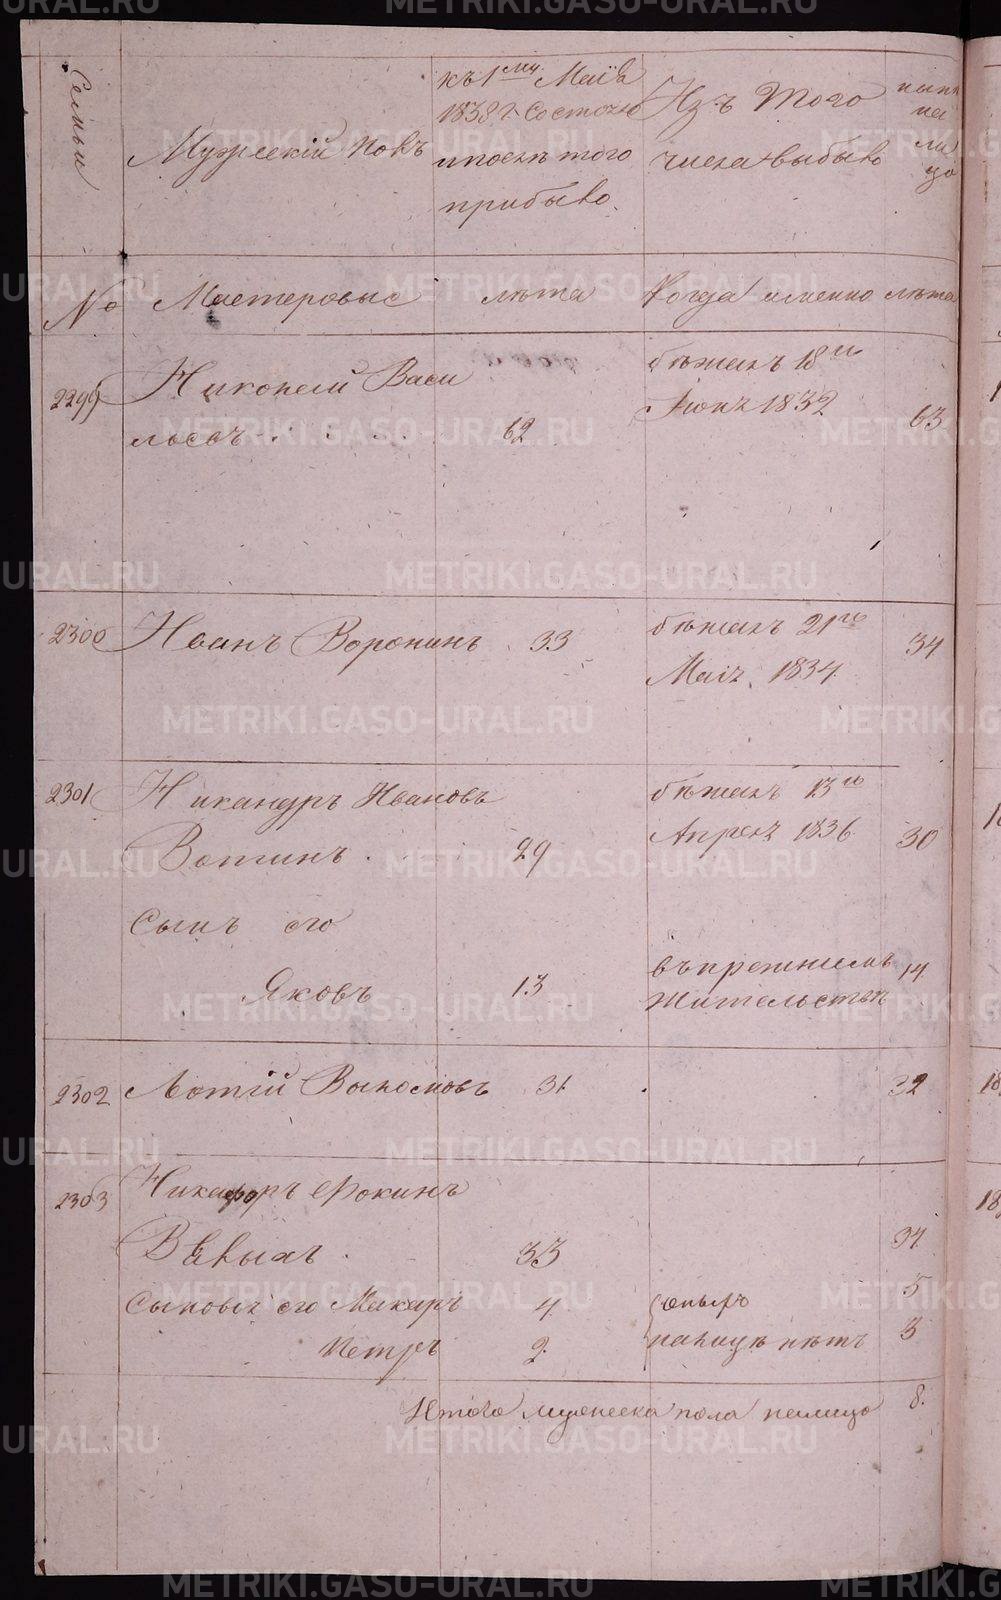 Семьи
Мужескiй полъ
къ 1му Маiя
1838 г. состояло
и послѣ того
прибыло.
Изъ того
числа выбыло
ныня
на
ли
цо
№ Мастеровые лѣта Когда именно лѣта
2299 Никопел Васи
льевъ 62
бѣжалъ 18го
Iюня 1832 63
2300 Иванъ Воронинъ 33
бѣжалъ 21го 34
Маiя 1834
2301 Никандръ Ивановъ
Вотинъ 29
бѣжалъ 13го
Апреля 1836 30
Сынъ его
Яковъ 13
въ прежнемъ 14
жительствѣ
2302 31 32
2303 Никафоръ Фокинъ
33 34
Сыновья его Макаръ 4 5
Петръ 2 3
налицѣ нѣтъ
Итого мужеска пола налицо 8.
METRIKI.GASO-URAL.RU